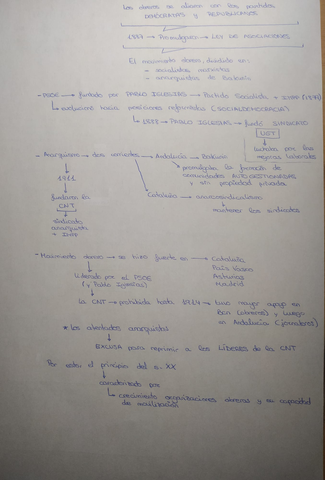 Los obreros se alían con los partidos
DEMÓCRATAS y REPUBLICANOS
1887 → Promulgan → LEY DE ASOCIACIONES
El movimiento obrero, dividido en:
- socialistas marxistas
- anarquistas de Bakunin
- PSOE → fundado por PABLO IGLESIAS → Partido Socialista + IMP (1879)
↳ evolucionó hacia posiciones reformistas (SOCIALDEMOCRACIA)
↳ 1888 → PABLO IGLESIAS → fundó SINDICATO
UGT
luchaba por las
mejoras laborales
- Anarquismo → dos corrientes → Andalucía → Bakunin
promulgaba la formación de
comunidades AUTOGESTIONADAS
y sin propiedad privada
1911
fundaron la
CNT
sindicato
anarquista
+ IMP
Cataluña → anarcosindicalismo
mantener los sindicatos
- Movimiento obrero → se hizo fuerte en → Cataluña
País Vasco
Asturias
Madrid
liderado por el PSOE
(y Pablo Iglesias)
la CNT → prohibida hasta 1914 → tuvo mayor apoyo en
Bcn (obreros) y luego
en Andalucía (jornaleros)
* los atentados anarquistas
EXCUSA para reprimir a los LÍDERES de la CNT
Por esto, el principio del s. XX
caracterizado por
↳ crecimiento organizaciones obreras y su capacidad
de movilización